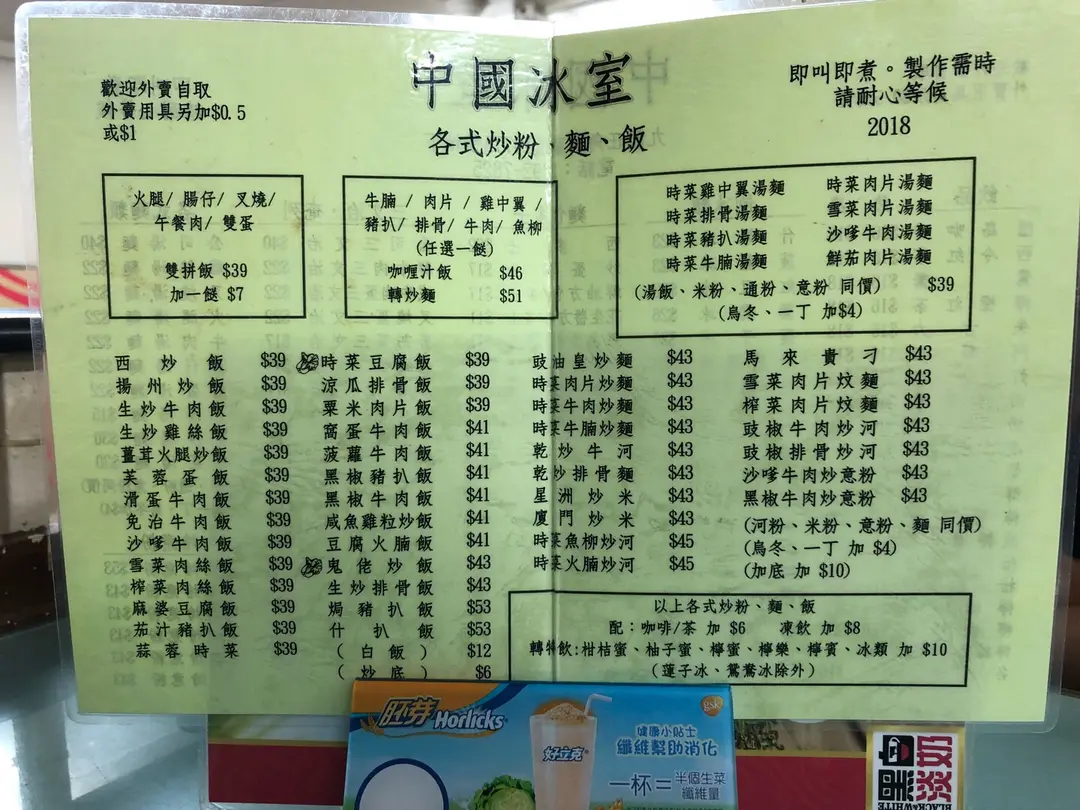 歡迎外賣自取
外賣用具另加$0.5
或$1
中國冰室
各式炒粉、麵、飯
即叫即煮。製作需時
請耐心等候
2018
火腿/ 腸仔/ 叉燒/
午餐肉/ 雙蛋
雙拼飯 $39
加一餸 $7
牛腩 / 肉片 / 雞中翼 /
豬扒/ 排骨/ 牛肉/ 魚柳
(任選一餸)
咖喱汁飯 $46
轉炒麵 $51
時菜雞中翼湯麵 時菜肉片湯麵
時菜排骨湯麵 雪菜肉片湯麵
時菜豬扒湯麵 沙嗲牛肉湯麵
時菜牛腩湯麵 鮮茄肉片湯麵
(湯飯、米粉、通粉、意粉 同價) $39
(烏冬、一丁 加$4)
西炒飯 $39
揚州炒飯 $39
生炒牛肉飯 $39
生炒雞絲飯 $39
薑茸火腿炒飯 $39
芙蓉蛋飯 $39
滑蛋牛肉飯 $39
免治牛肉飯 $39
沙嗲牛肉飯 $39
雪菜肉絲飯 $39
榨菜肉絲飯 $39
麻婆豆腐飯 $39
茄汁豬扒飯 $39
蒜蓉時菜 $39
時菜豆腐飯 $39
涼瓜排骨飯 $39
粟米肉片飯 $39
窩蛋牛肉飯 $41
菠蘿牛肉飯 $41
黑椒豬扒飯 $41
黑椒牛肉飯 $41
咸魚雞粒炒飯 $41
豆腐火腩飯 $41
鬼佬炒飯 $43
生炒排骨飯 $43
焗豬扒飯 $53
什扒飯 $53
(白飯) $12
(炒底) $6
豉油皇炒麵 $43
時菜肉片炒麵 $43
時菜牛肉炒麵 $43
時菜牛腩炒麵 $43
乾炒牛河 $43
乾炒排骨麵 $43
星洲炒米 $43
廈門炒米 $43
時菜魚柳炒河 $45
時菜火腩炒河 $45
馬來貴刁 $43
雪菜肉片炆麵 $43
榨菜肉片炆麵 $43
豉椒牛肉炒河 $43
豉椒排骨炒河 $43
沙嗲牛肉炒意粉 $43
黑椒牛肉炒意粉 $43
(河粉、米粉、意粉、麵 同價)
(烏冬、一丁 加 $4)
(加底 加 $10)
以上各式炒粉、麵、飯
配：咖啡/茶 加 $6 凍飲 加 $8
轉特飲:柑桔蜜、柚子蜜、檸蜜、檸樂、檸賓、冰類 加 $10
(蓮子冰、鴛鴦冰除外)
胚芽 Horlicks
好立克
gsk
健康小貼士
纖維幫助消化
一杯=半個生菜
纖維量
黑白淡奶
BLACK&WHITE